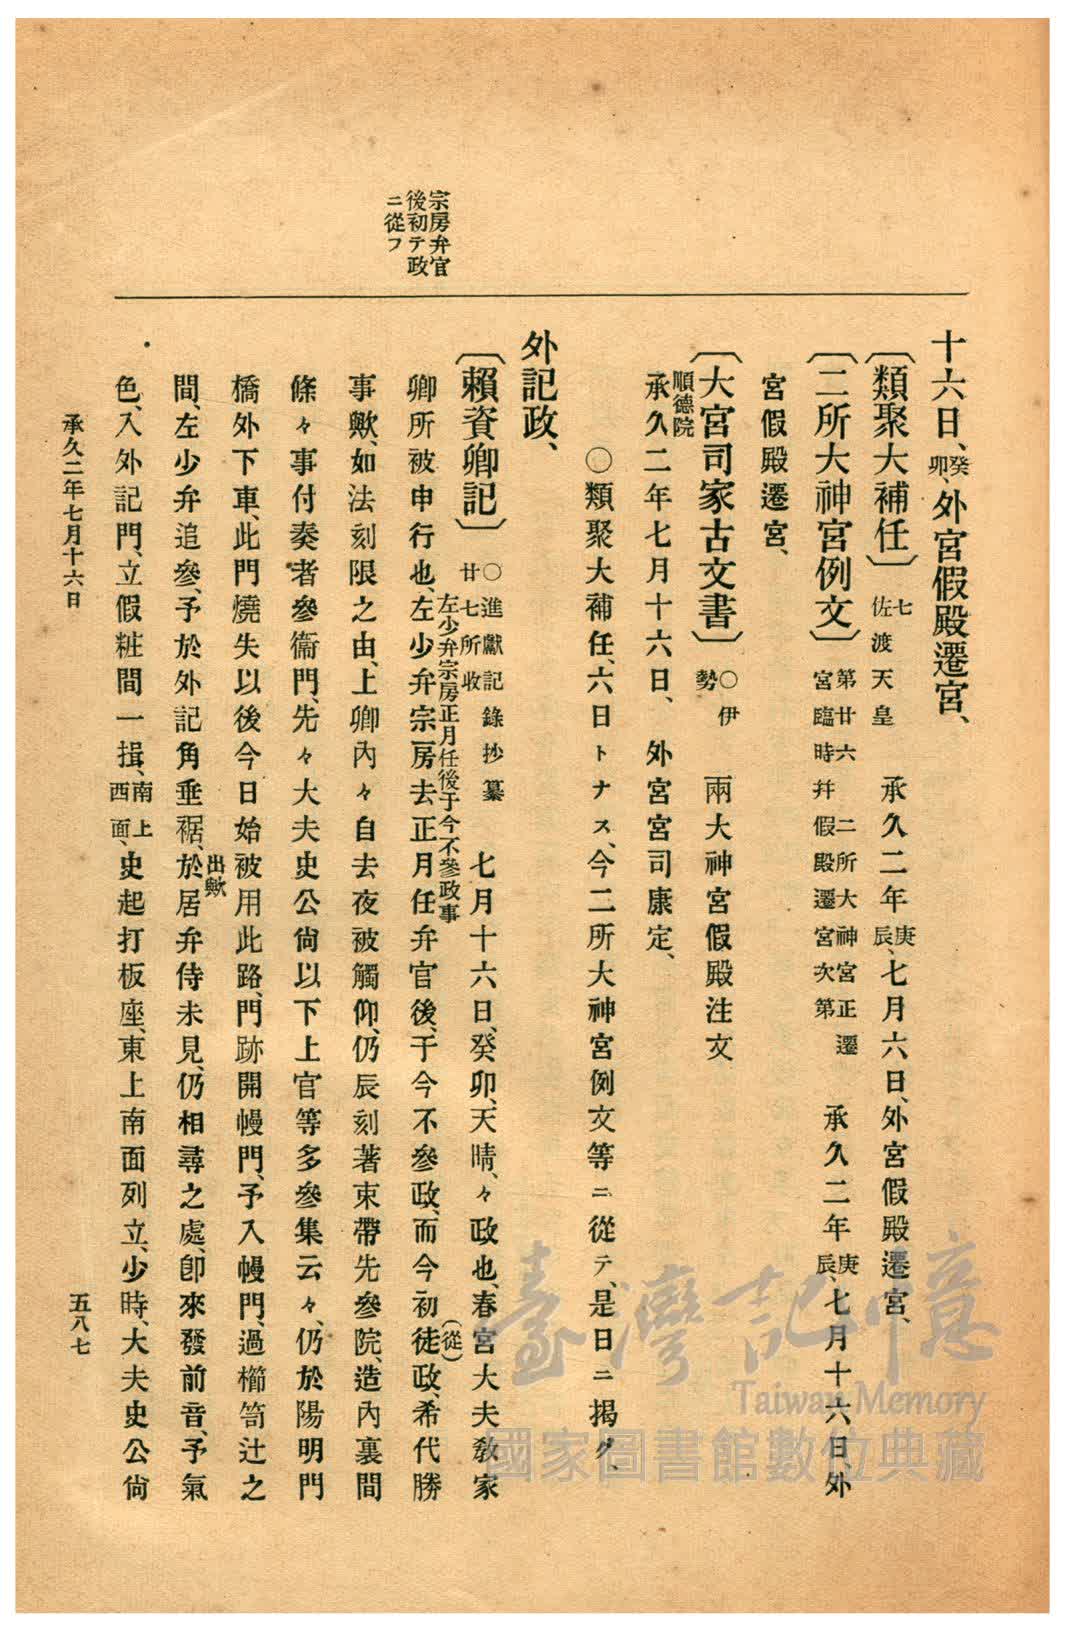 宗房弁官
後初テ政
ニ從フ
十六日、癸卯、外宮假殿遷宮、
〔類聚大補任〕七 佐渡天皇 承久二年庚辰、七月六日、外宮假殿遷宮、
〔二所大神宮例文〕第廿六 二所大神宮正遷宮臨時幷假殿遷宮次第 承久二年庚辰、七月十六日、外
宮假殿遷宮、
〔大宮司家古文書〕○伊勢 兩大神宮假殿注文
順德院
承久二年七月十六日、外宮宮司康定、
○類聚大補任、六日トナス、今二所大神宮例文等ニ從テ、是日ニ揭グ、
外記政、
〔賴資卿記〕○進獻記錄抄纂廿七所收 七月十六日、癸卯、天晴、々政也、春宮大夫敎家
左少弁宗房正月任後于今不參政事
(從)
卿所被申行也、左少弁宗房去正月任弁官後、于今不參政、而今初徒政、希代勝
事歟、如法刻限之由、上卿內々自去夜被觸仰、仍辰刻著束帶先參院、造內裏間
條々事付奏者參衞門、先々大夫史公尙以下上官等多參集云々、仍於陽明門
橋外下車、此門燒失以後今日始被用此路、門跡開幔門、予入幔門、過櫛笥辻之
出歟
間、左少弁追參、予於外記角垂裾、於居弁侍未見、仍相尋之處、卽來發前音、予氣
色、入外記門、立假粧間一揖、南上西面、史起打板座、東上南面列立、少時、大夫史公尙
承久二年七月十六日
五八七
臺灣記憶
Taiwan Memory
國家圖書館數位典藏